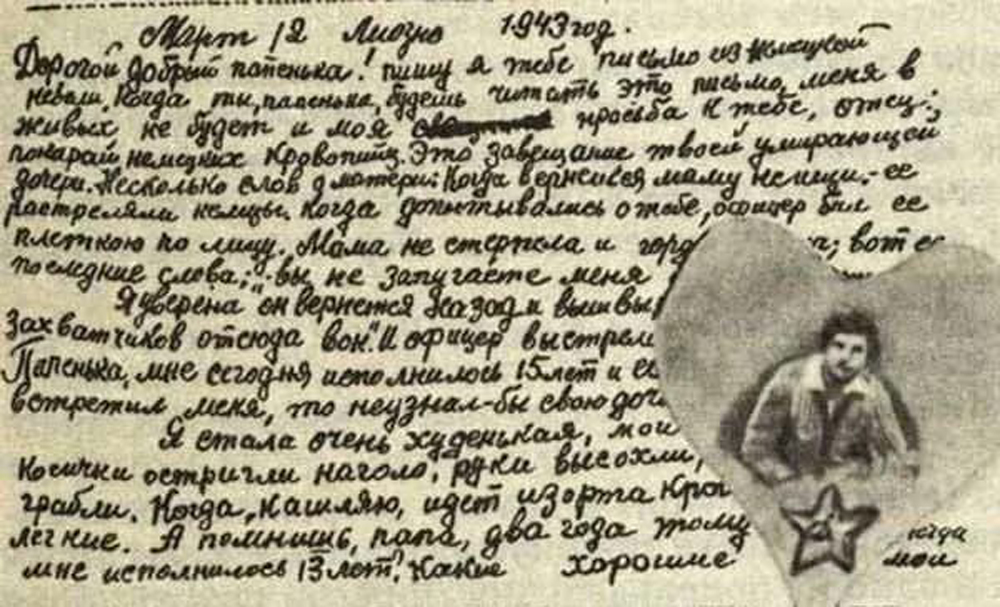 Март 12 Лиозно 1943 год.
Дорогой добрый папенька! пишу я тебе письмо из немецкой
неволи. Когда ты, папенька, будешь читать это письмо, меня в
живых не будет и моя просьба к тебе, отец:
покарай немецких кровопийц. Это завещание твоей умирающей
дочери. Несколько слов о матери: Когда вернешься, маму не ищи.- ее
растреляли немцы. Когда допытывались о тебе, офицер бил ее
плеткою по лицу. Мама не стерпела и горд а; вот ее
последние слова; "вы не запугаете меня
Я уверена он вернется назад и вышвыр
захватчиков отсюда вон". И офицер выстрели
Папенька, мне сегодня исполнилось 15 лет и ес
встретил меня, то неузнал-бы свою доч
Я стала очень худенькая, мои
Косички остригли наголо, руки высохли,
грабли. Когда кашляю, идет изорта кров
легкие. А помнишь, папа, два года тому когда
мне исполнилось 13 лет? Какие хорошие мои